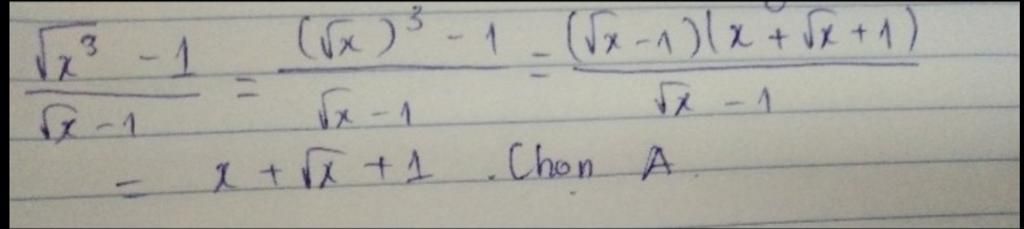 \frac{\sqrt{x^3} - 1}{\sqrt{x} - 1} = \frac{(\sqrt{x})^3 - 1}{\sqrt{x} - 1} = \frac{(\sqrt{x} - 1)(x + \sqrt{x} + 1)}{\sqrt{x} - 1}
= x + \sqrt{x} + 1 . Chọn A